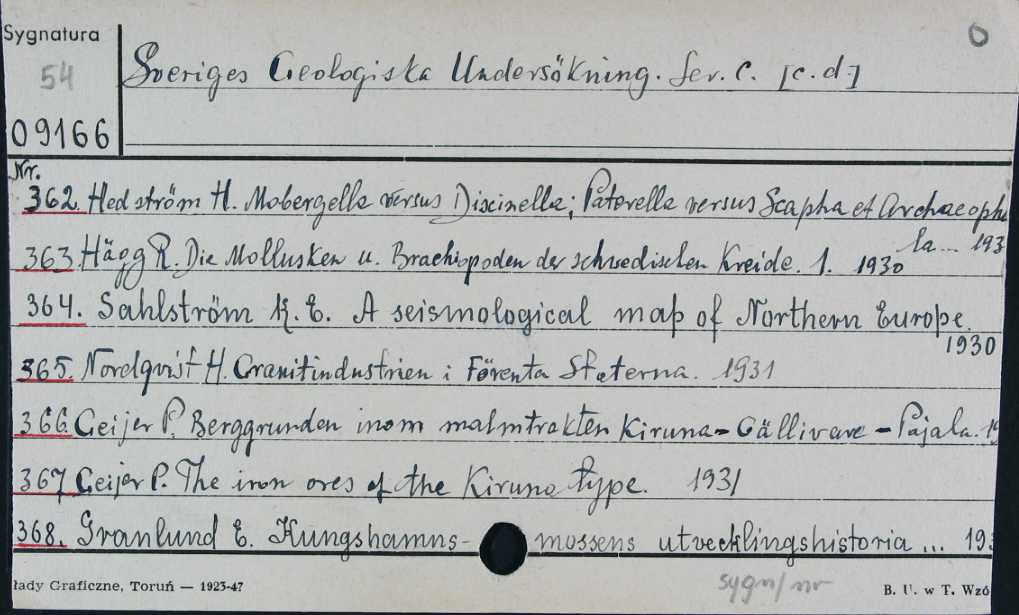 Sygnatura
54
09166
0
Sveriges Geologiska Undersökning. Ser. C. [c.d.]
Nr.
362. Hedström H. Mobergella versus Discinella; Paterella versus Scapha et Archaeophia
la... 193
363 Hägg R. Die Mollusken u. Brachiopoden der schwedischen Kreide. 1. 1930
364. Sahlström K. E. A seismological map of Northern Europe.
1930
365. Nordqvist H. Granitindustrien i Förenta Staterna. 1931
366 Geijer P. Berggrunden inom malmtrakten Kiruna - Gällivare - Pajala. 19
367 Geijer P. The iron ores of the Kiruna type. 1931
368. Granlund E. Kungshamns- mossens utvecklingshistoria ... 193
łady Graficzne, Toruń — 1923-47
sygn/nr
B. U. w T. Wzó